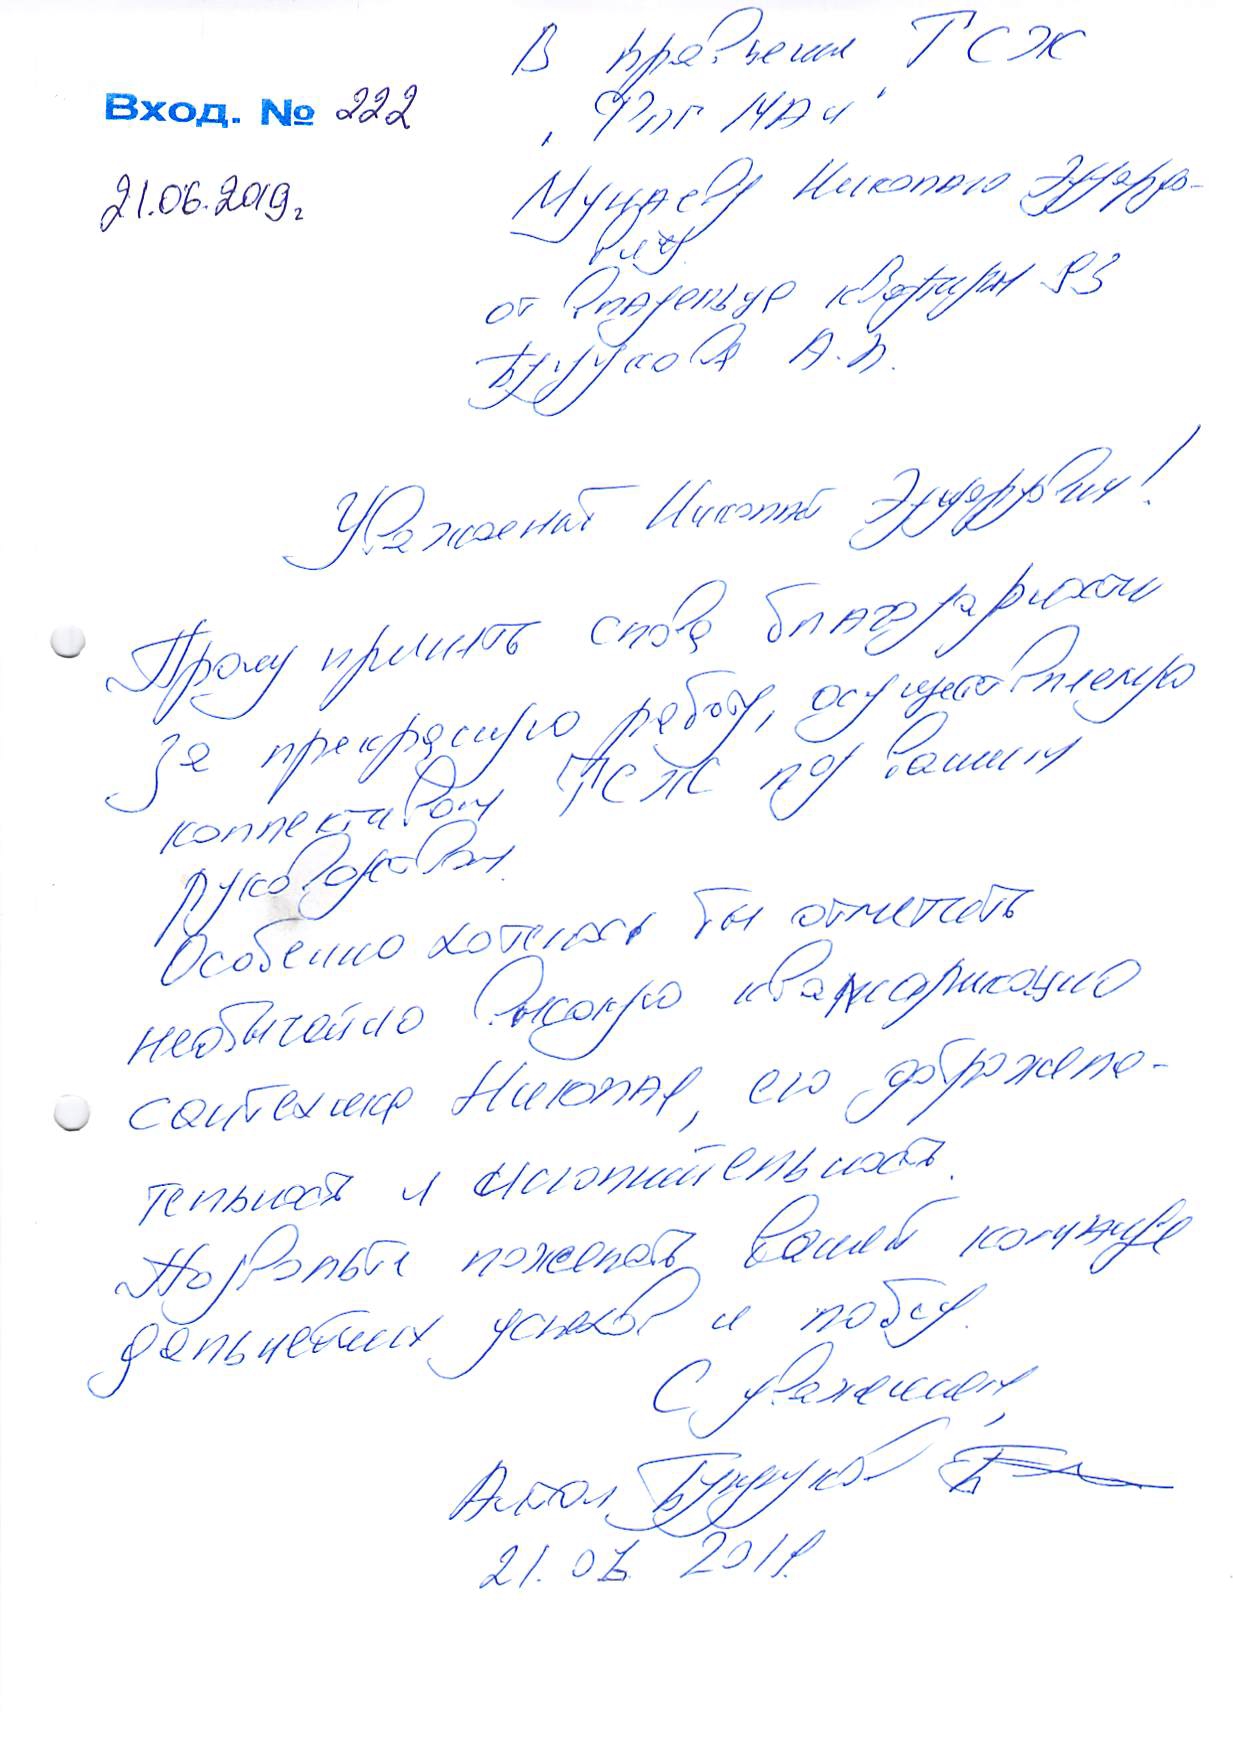 В правление ТСЖ
Вход. № 222
"Флагман"
21.06.2019г.
Мущаеву Николаю Эдуардо-
вичу
от владельца квартиры 93
А.В.
Уважаемый Николай Эдуардович!
Прошу принять слова благодарности
за прекрасную работу, осуществляемую
коллективом ТСЖ под вашим
руководством.
Особенно хотелось бы отметить
необычайно высокую квалификацию
сантехника Николая, его доброжела-
тельность и исполнительность.
Позвольте пожелать вашей команде
дальнейших успехов и побед.
С уважением,
Антон
21.06.2019.